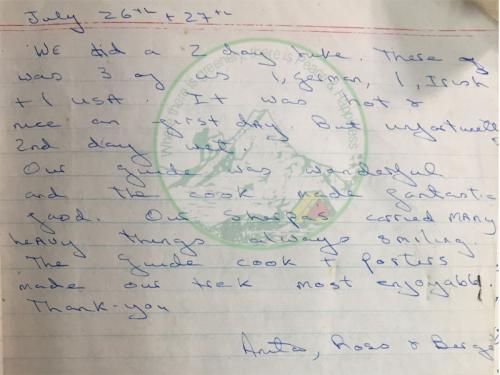 July 26th + 27th
WE did a 2 day hike. There
was 3 of us 1, german, 1, Irish
+ 1 USA. It was hot &
nice on first day. But unfortunately
2nd day wet.
Our guide was wonderful
and the cook made fantastic
good. Our sherpas carried MANY
heavy things always smiling.
The guide cook + porters
made our trek most enjoyable.
Thank-you
Anita, Ross &
Where there is greenery, there is Peace & Happiness